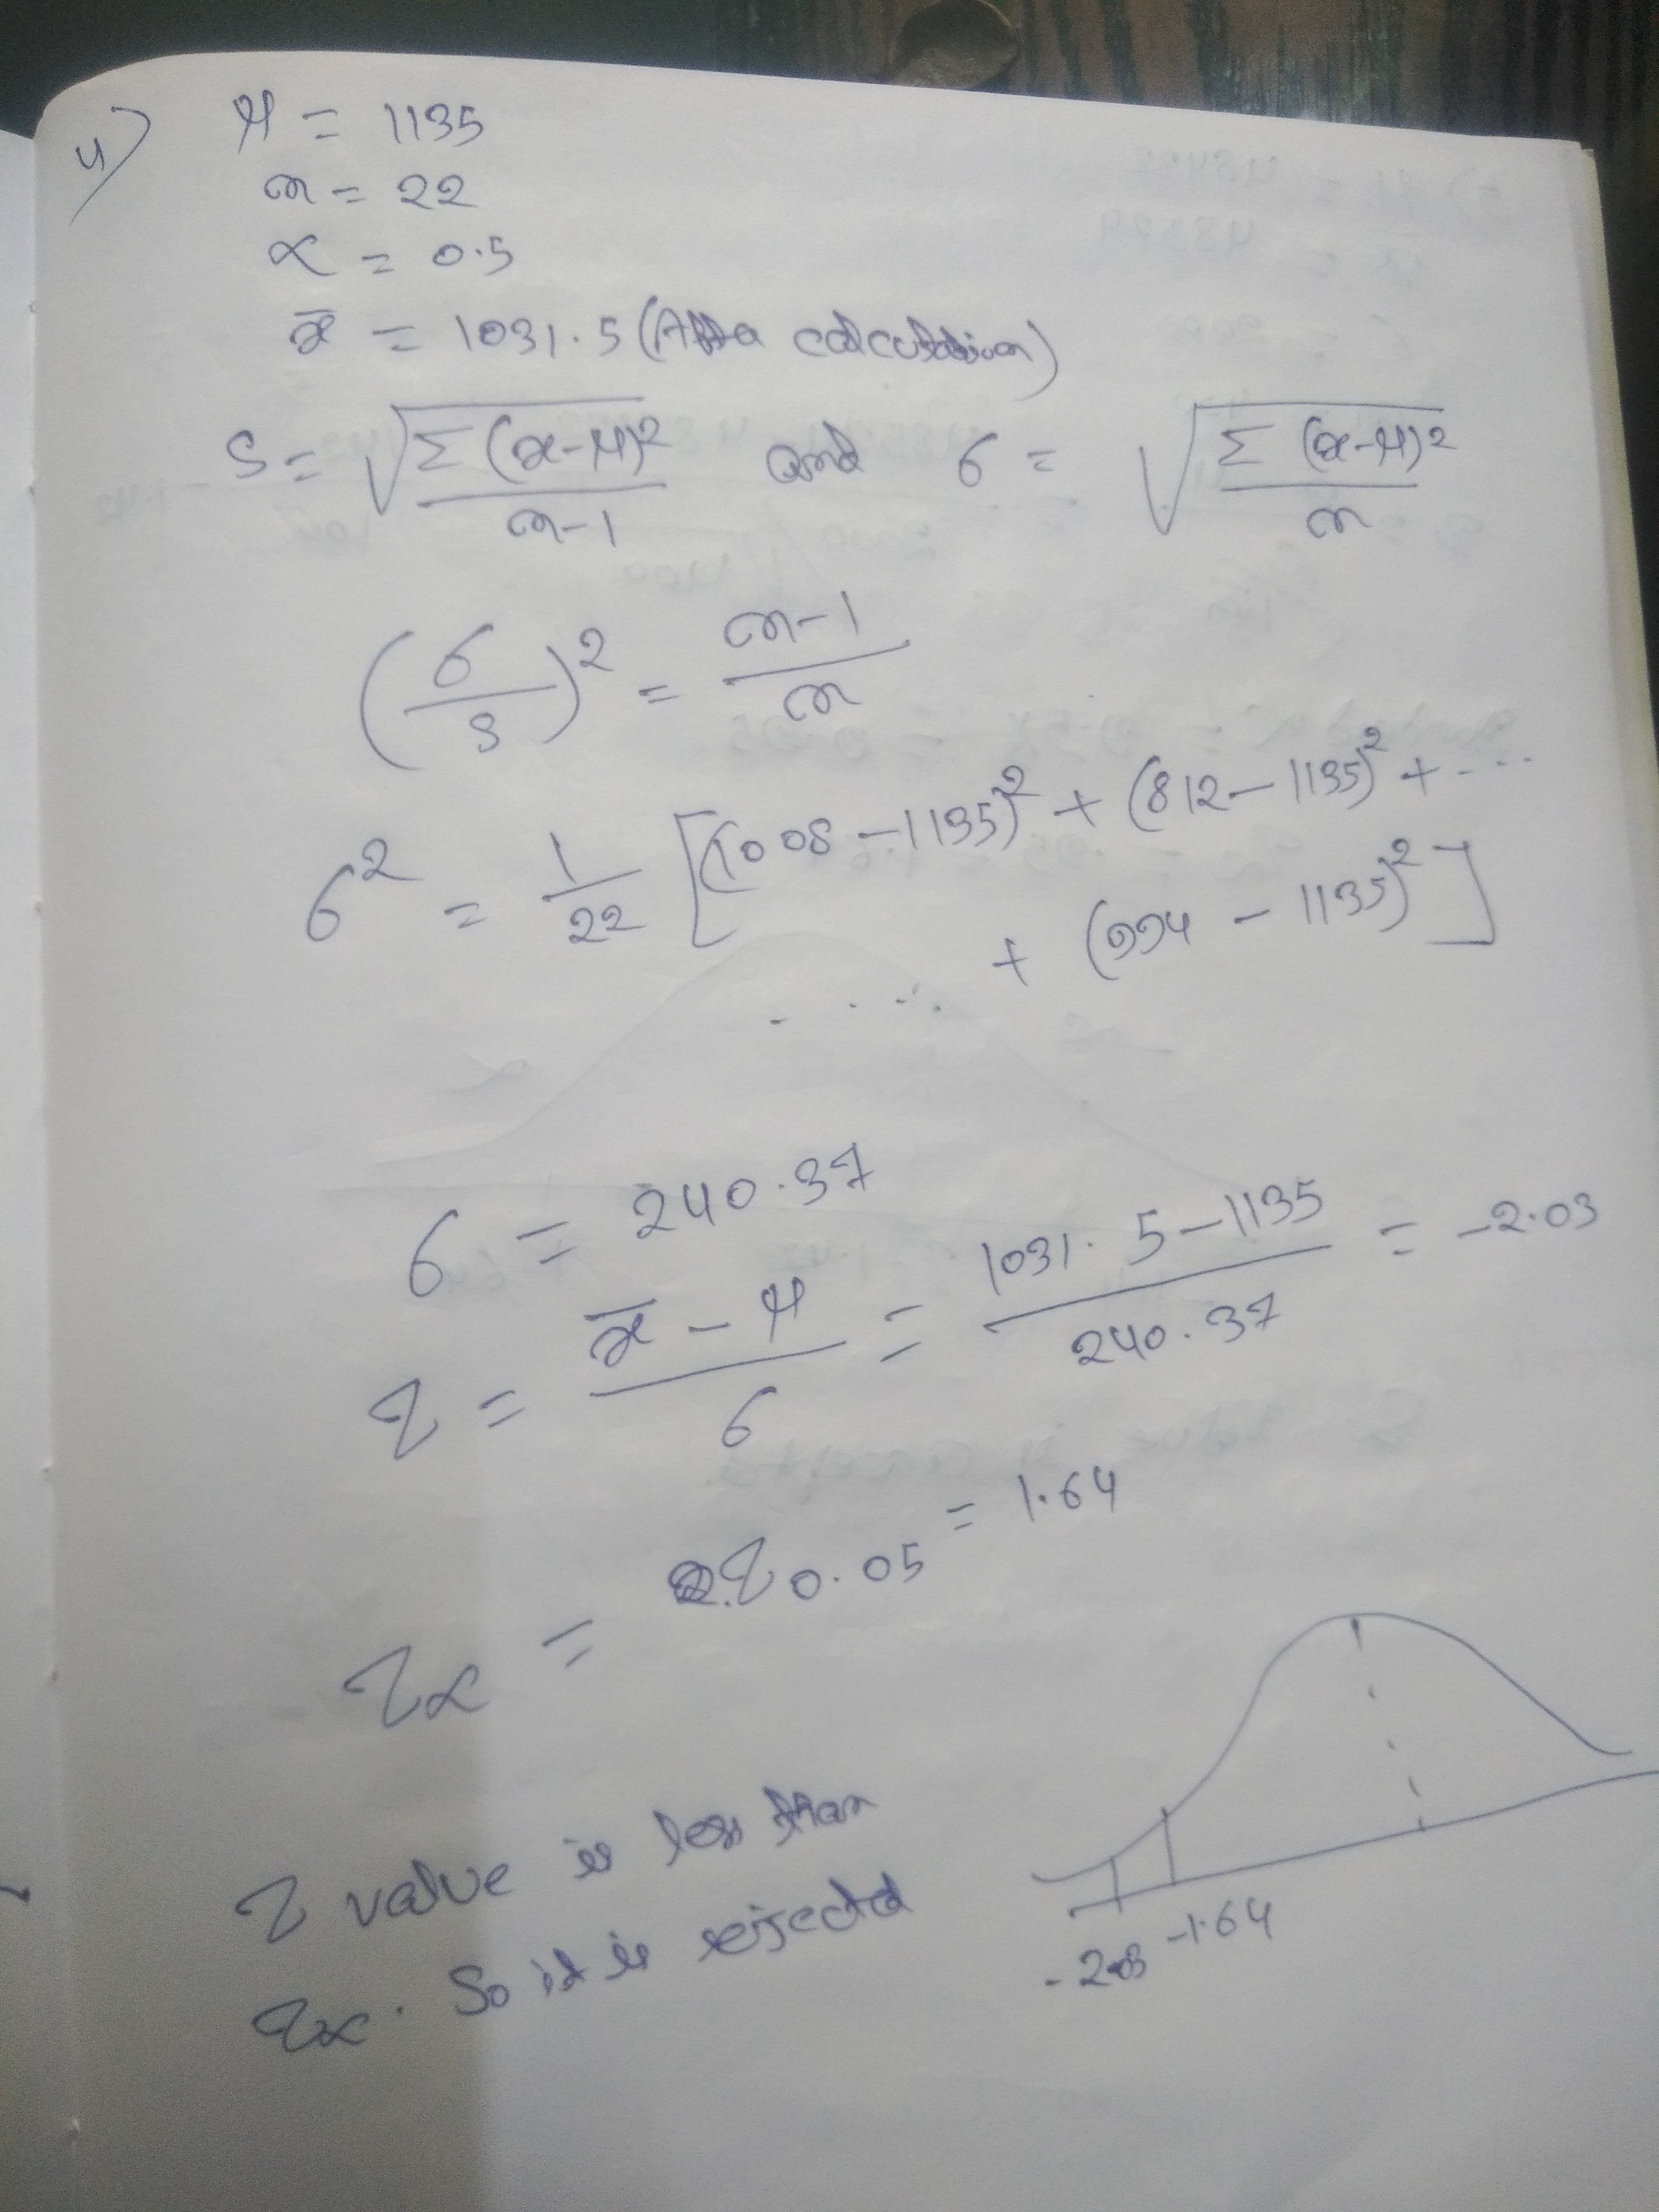 4)
μ = 1135
n = 22
α = 0.5
x̄ = 1031.5 (After calculation)
S = √(Σ(x-μ)² / n-1) and σ = √(Σ(x-μ)² / n)
(σ/S)² = n-1 / n
σ² = 1/22 [(1008-1135)² + (812-1135)² + ....
+ (994-1135)²]
. . . . .
σ = 240.37
Z = x̄ - μ / σ = 1031.5-1135 / 240.37 = -2.03
Zα = Z0.05 = 1.64
Z value is less than
Zα. So it is rejected
-2.03 -1.64